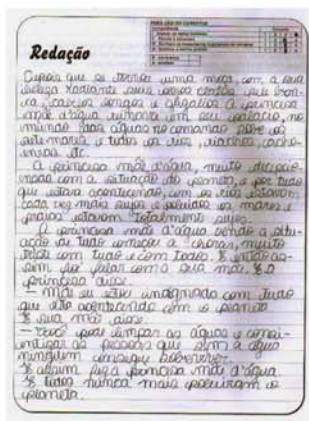 PARA USO DO CORRETOR
Redação
Depois que se tornou uma moça com a sua
beleza radiante seus
cabelos longos e a princesa
mãe d'água em seu palácio, no
mundo das águas no comando sobre os
sete mares e todos os rios, riachos, cacho-
eiras etc.
A princesa mãe d'água, muito decepcio-
enada com a situação do planeta, e por tudo
que estava acontecendo, com os rios estavam
cada vez mais sujos e poluidos os mares e
praias estavam totalmente sujos.
A princesa mãe d'água vendo a situ-
ação de tudo começou a chorar, muito
triste com tudo e com todos. E então as-
sim foi falar com a sua mãe. E a
princesa disse.
— mãe eu estou indignada com tudo
que está acontecendo com o planeta
E sua mãe disse.
— Você pode limpar as águas e consi-
entizar as pessoas que sem a água
ninguem consegue sobreviver.
E assim fez a princesa mãe d'água.
E todos nunca mais poluiram o
planeta.